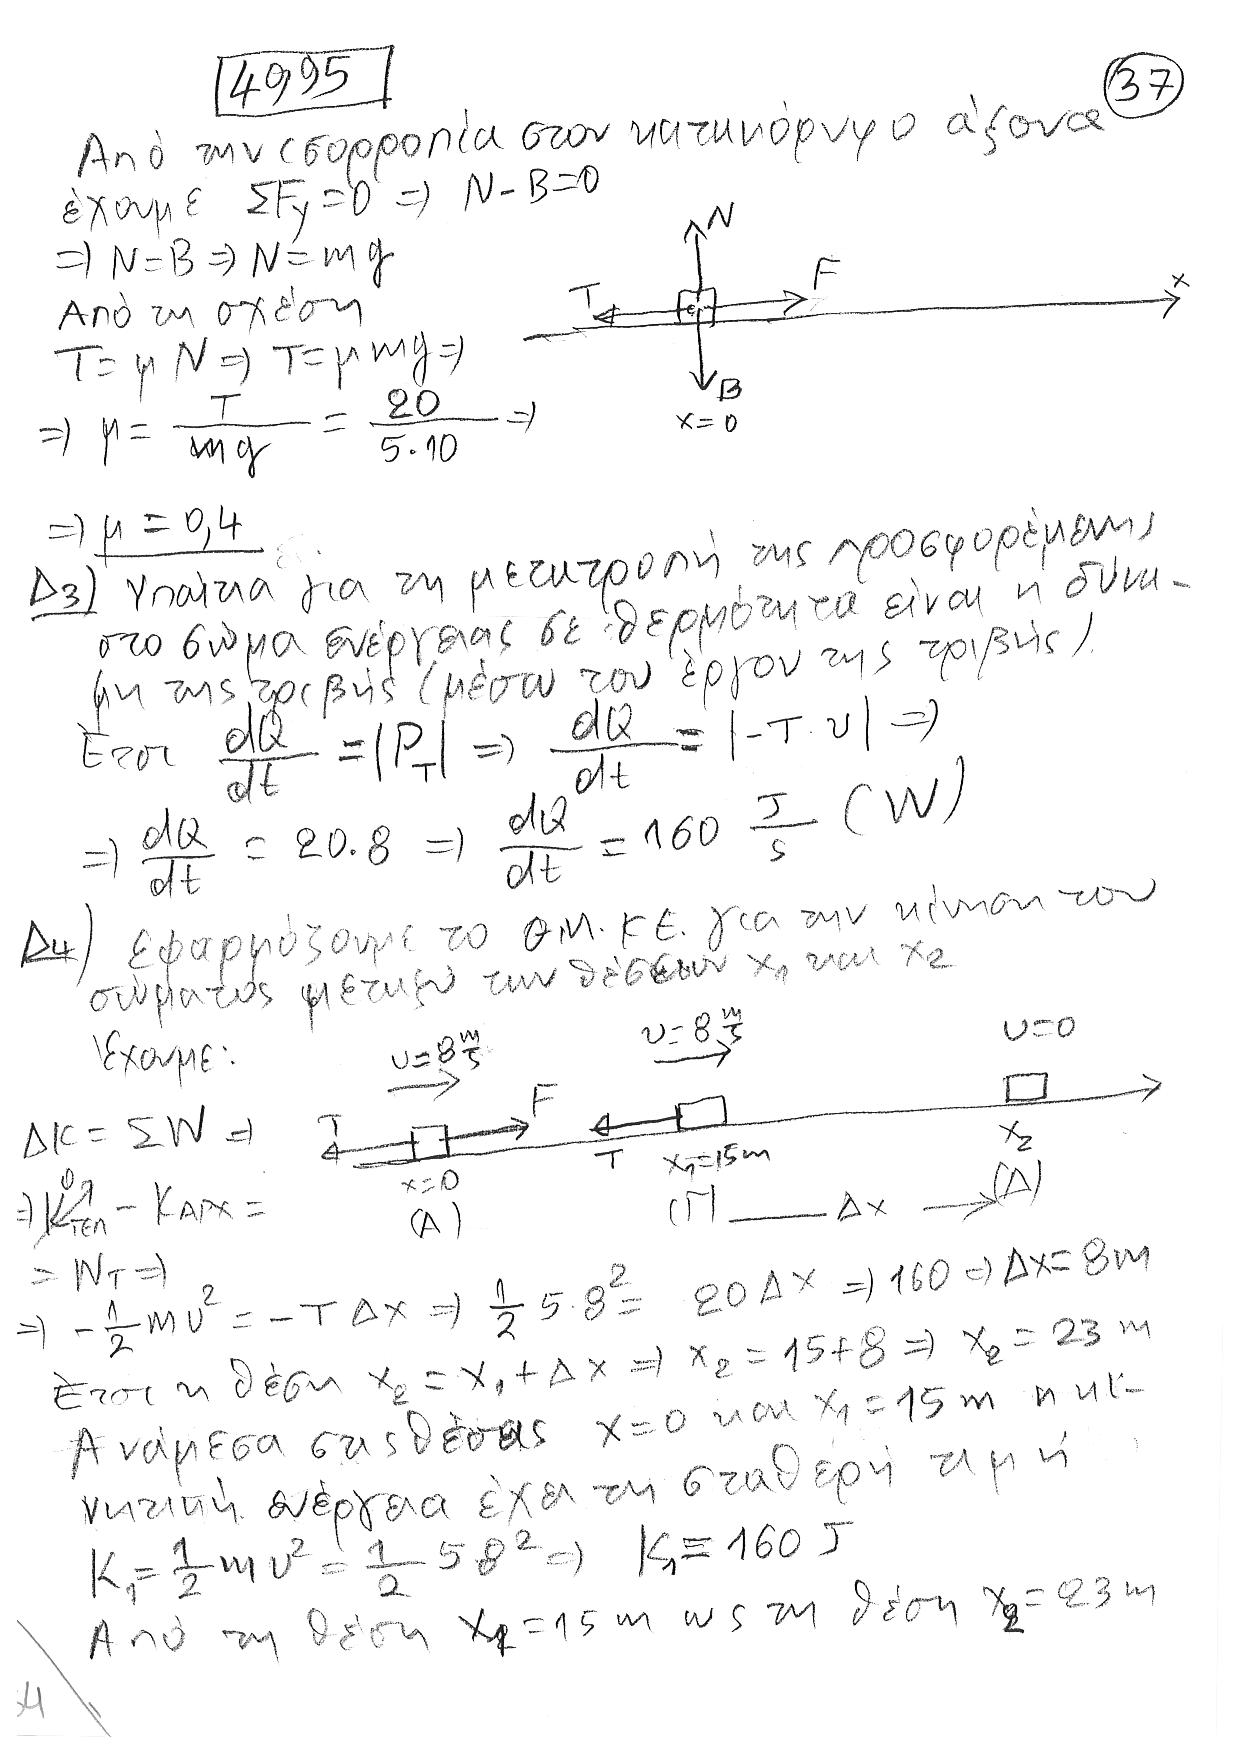 4995
37
Από την ισορροπία στον κατακόρυφο άξονα
έχουμε ΣFy=0 => N-B=0
=> N=B => N=mg
Από τη σχέση
T=μN => T=μmg =>
=> μ= T/mg = 20/5·10 =>
=> μ=0,4
N
T
F
x
B
x=0
Δ3) Υπαίτια για τη μετατροπή της προσφερόμενης
στο σώμα ενέργειας σε θερμότητα είναι η δύνα-
μη της τριβής (μέσω του έργου της τριβής).
Έτσι dQ/dt = |P_T| => dQ/dt = |-T·υ| =>
=> dQ/dt = 20·8 => dQ/dt = 160 J/s (W)
Δ4) Εφαρμόζουμε το Θ.Μ.Κ.Ε. για την κίνηση του
σώματος μεταξύ των θέσεων x₁ και x₂
Έχουμε:
υ=8 m/s
υ=8 m/s
υ=0
T
F
T
x=0
x₁=15m
x₂
(A)
(Γ) Δx (Δ)
ΔK = ΣW =>
=> Kτελ⁰ - Kαρχ =
= W_T =>
=> -½mυ² = -TΔx => ½ 5·8² = 20Δx => 160 => Δx=8m
Έτσι η θέση x₂=x₁+Δx => x₂=15+8 => x₂=23m
Ανάμεσα στις θέσεις x=0 και x₁=15m η κι-
νητική ενέργεια έχει τη σταθερή τιμή
K₁=½mυ²=½ 5 8² => K₁=160 J
Από τη θέση x₁=15m ως τη θέση x₂=23m